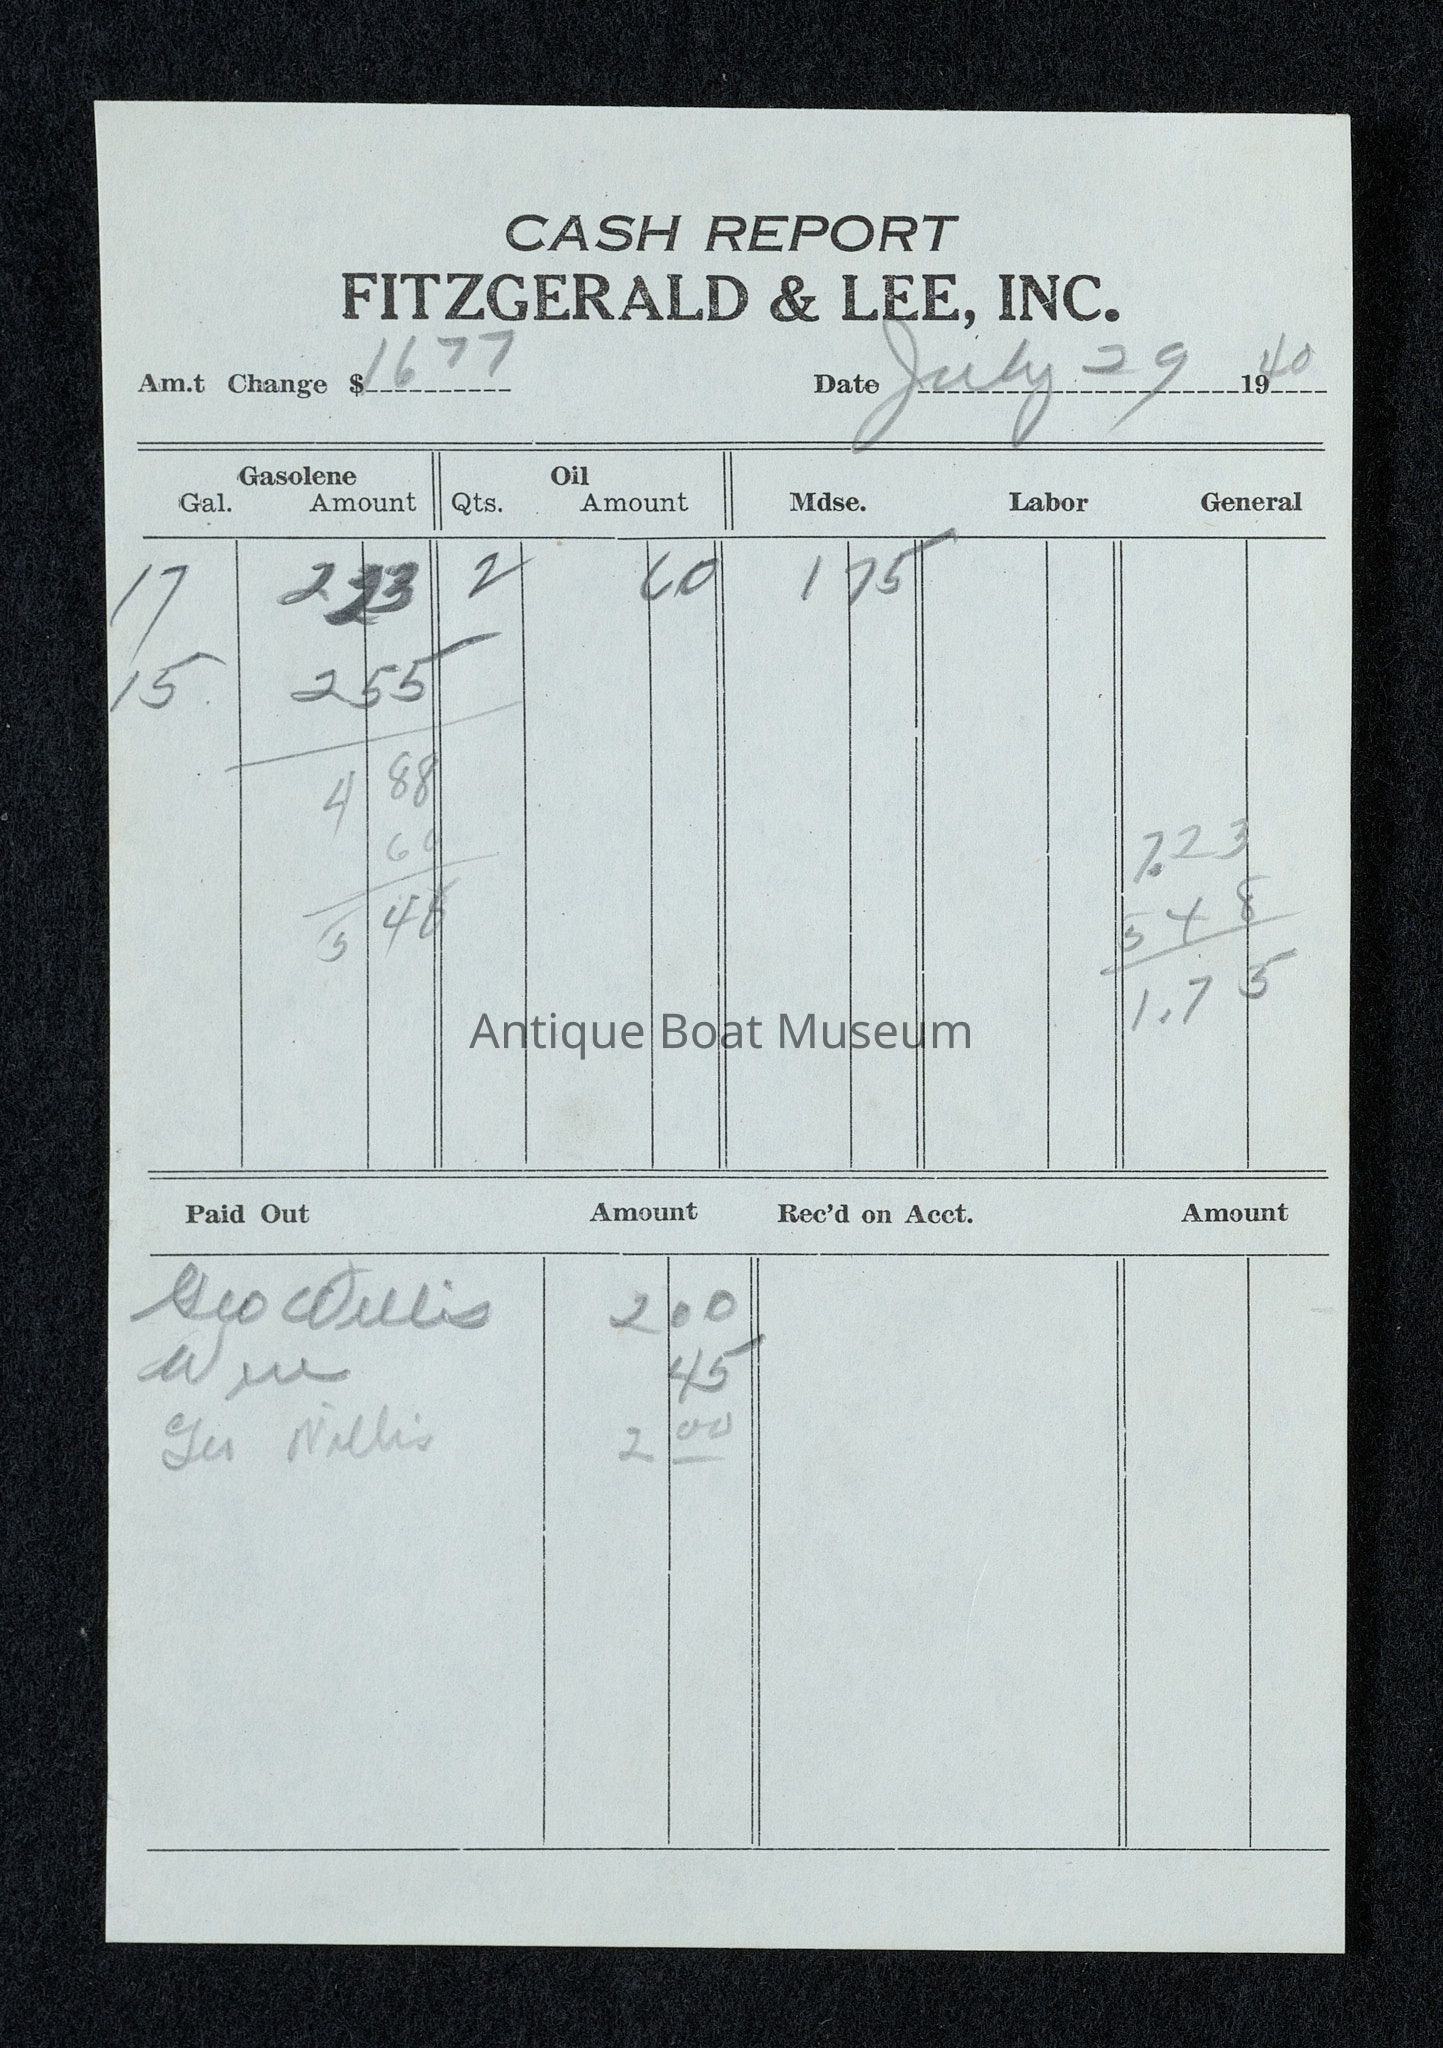 CASH REPORT
FITZGERALD & LEE, INC.
Am.t Change $ 1677 Date July 29 1940
Gasolene Oil
Gal. Amount Qts. Amount Mdse. Labor General
17 2 33 2 60 1 75
15 2 55
4 88
60 7.23
5 48 5 4 8
1.75
Antique Boat Museum
Paid Out Amount Rec'd on Acct. Amount
Geo Willis 2 00
45
Geo Willis 2 00